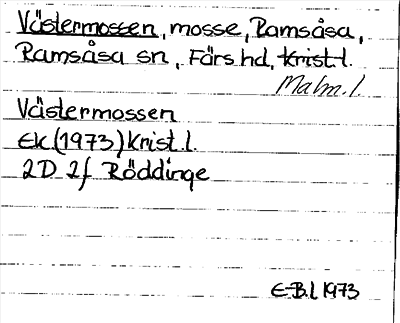 Västermossen, mosse, Ramsåsa,
Ramsåsa sn, Färs hd, Krist. l.
Malm. l.
Västermossen
Ek (1973) Krist. l.
2D 2f Röddinge
E-B. l 1973